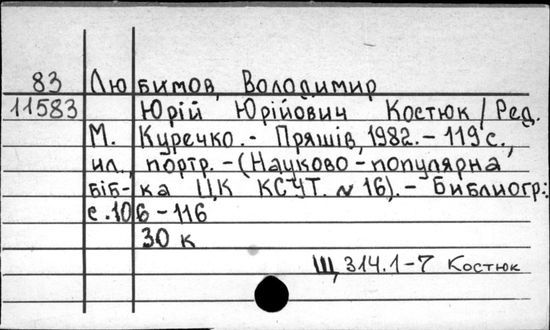 83 Любимов, Володимир
11583 Юрій Юрійович Костюк / Ред.
М. Куречко. - Пряшів, 1982. - 119 с.,
ил., портр. - (Науково-популярна
біб-ка ЦК КСУТ. № 16). - Библиогр.:
с. 106-116
30 к
Щ 314.1-7 Костюк